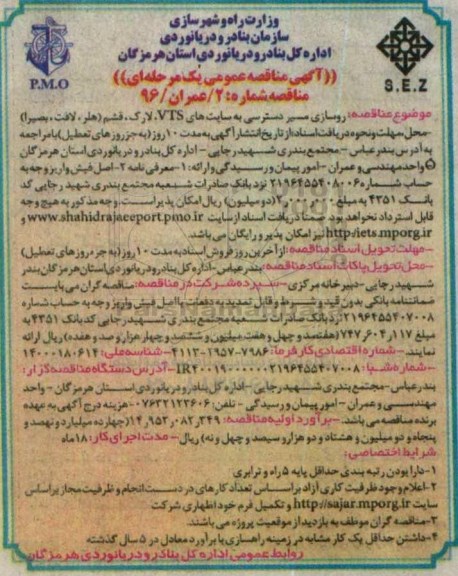 وزارت راه و شهرسازی
سازمان بنادر و دریانوردی
اداره کل بنادر و دریانوردی استان هرمزگان
P.M.O
S.E.Z
((آگهی مناقصه عمومی یک مرحله‌ای))
مناقصه شماره: ۲/عمران/۹۶
موضوع مناقصه: روسازی مسیر دسترسی به سایت های VTS، لارک، قشم (هلر، لافت، بصیرا)
-محل، مهلت و نحوه دریافت اسناد: از تاریخ انتشار آگهی به مدت ۱۰ روز (به جز روز های تعطیل) با مراجعه
به آدرس بندرعباس - مجتمع بندری شهید رجایی - اداره کل بنادر و دریانوردی استان هرمزگان
واحد مهندسی و عمران - امور پیمان و رسیدگی و ارائه: ۱- معرفی نامه ۲- اصل فیش واریز وجه به
حساب شماره ۲۱۹۶۴۵۵۴۰۸۰۰۶ نزد بانک صادرات شعبه مجتمع بندری شهید رجایی کد
بانک ۴۳۵۱ به مبلغ ۲,۰۰۰,۰۰۰ (دو میلیون) ریال امکان پذیر است. وجه مذکور به هیچ وجه
قابل استرداد نخواهد بود. ضمناً دریافت اسناد از سایت www.shahidrajaeeport.pmo.ir و
http://iets.mporg.ir نیز امکان پذیر و رایگان می باشد.
-مهلت تحویل اسناد مناقصه: از آخرین روز فروش اسناد به مدت ۱۰ روز (به جز روزهای تعطیل)
-محل تحویل پاکات اسناد مناقصه: بندرعباس - اداره کل بنادر و دریانوردی استان هرمزگان بندر
شهید رجایی - دبیرخانه مرکزی - سپرده شرکت در مناقصه: مناقصه گران می بایست
ضمانتنامه بانکی بدون قید و شرط و قابل تمدید به دفعات یا اصل فیش واریز وجه به حساب شماره
۲۱۹۶۴۵۵۴۰۷۰۰۸ نزد بانک صادرات شعبه مجتمع بندری شهید رجایی کد بانک ۴۳۵۱ به
مبلغ ۷۴۷,۶۰۴,۱۱۷ (هفتصد و چهل و هفت میلیون و ششصد و چهار هزار و صد و هفده) ریال ارائه
نمایند. -شماره اقتصادی کارفرما: ۷۹۸۶-۱۹۵۷-۴۱۱۳ -شناسه ملی: ۱۴۰۰۰۱۸۰۶۱۴
-شماره شبا: IR۲۰۰۱۹۰۰۰۰۰۰۰۲۱۹۶۴۵۵۴۰۷۰۰۸ -آدرس دستگاه مناقصه گزار:
بندرعباس-مجتمع بندری شهید رجایی - اداره کل بنادر و دریانوردی استان هرمزگان - واحد
مهندسی و عمران - امور پیمان و رسیدگی - تلفن: ۰۷۶۳۲۱۲۳۶۰۶- هزینه درج آگهی به عهده
برنده مناقصه می باشد. -برآورد اولیه مناقصه: ۱۴,۹۵۲,۰۸۲,۳۴۹ (چهارده میلیارد و نهصد و
پنجاه و دو میلیون و هشتاد و دو هزار و سیصد و چهل و نه) ریال -مدت اجرای کار: ۱۸ ماه
شرایط اختصاصی:
۱-دارا بودن رتبه بندی حداقل پایه ۵ راه و ترابری
۲-اعلام وجود ظرفیت کاری آزاد براساس تعداد کارهای در دست انجام و ظرفیت مجاز براساس
سایت http://sajar.mporg.ir و تکمیل فرم خود اظهاری شرکت
۳-مناقصه گران موظف به بازدید از موقعیت پروژه می باشند.
۴-داشتن حداقل یک کار مشابه در زمینه راهسازی با برآورد معادل در ۵ سال گذشته
روابط عمومی اداره کل بنادر و دریانوردی هرمزگان